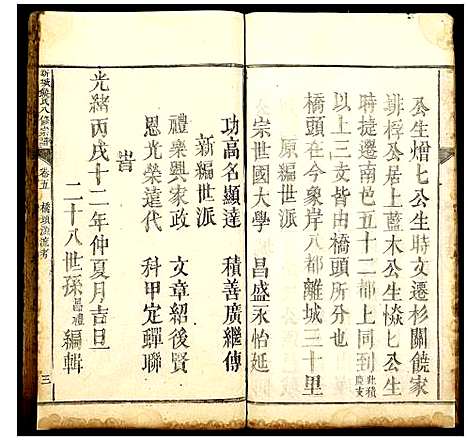 公生熷七公生時文遷杉關饒家
誹桴公居上藍木公生惔七公生
時捷遷南邑五十二都上同到
以上三支皆由橋頭所分也
橋頭在今象岸八都離城三十里
原編世派
宗世國大學 昌盛永怡延
功高名顯達 積善廣繼傳
新編世派
禮樂興家政 文章紹後賢
恩光榮達代 科甲定聯
旹
光緒丙戌十二年仲夏月吉旦
二十八世孫昌禮編輯
氏八修宗譜 卷五 橋頭源流考 三